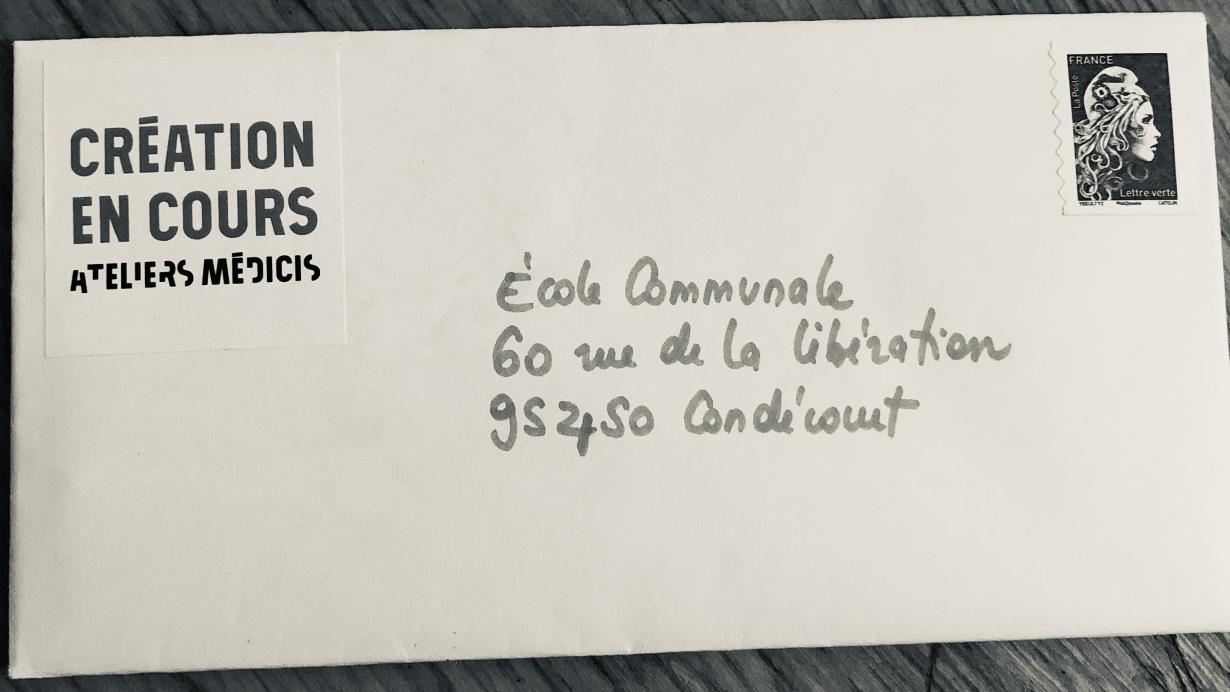 CRÉATION
EN COURS
ATELIERS MÉDICIS
FRANCE
La Poste
Lettre verte
École Communale
60 rue de la libération
95450 Condécourt